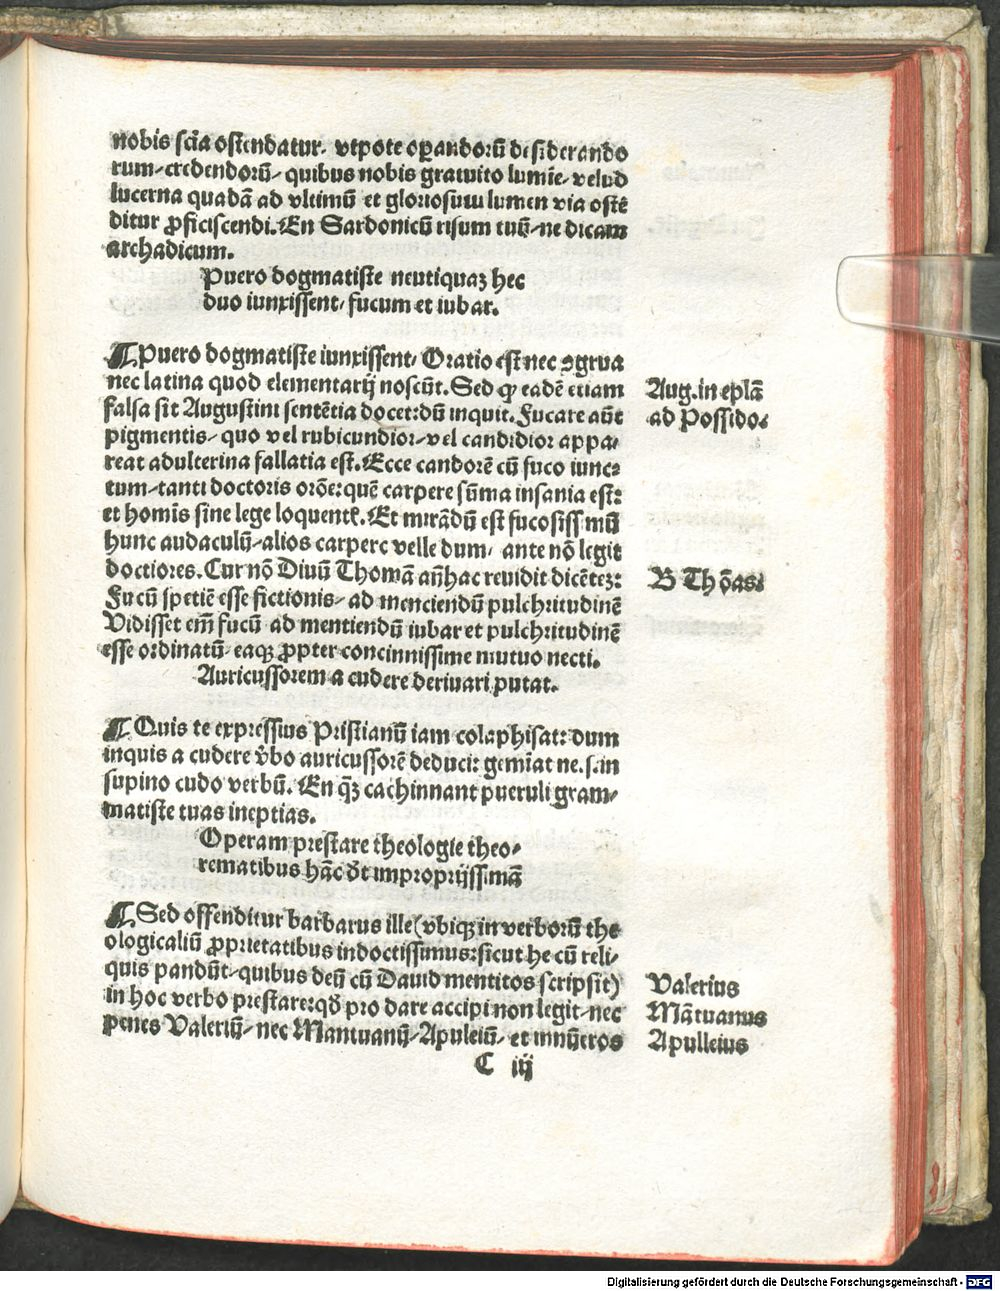 nobis scīa ostendatur. vtpote oꝑandorū desiderando
rum-credendorū- quibus nobis gratuito lumīe-velud
lucerna quadā ad vltimū et gloriosum lumen via ostē
ditur ꝓficiscendi. En Sardonicū risum tuū-ne dicam
archadicum.
Puero dogmatiste neutiquaꝫ hec
duo iunxissent, fucum et iubar.
¶ Puero dogmatiste iunxissent, Oratio est nec ꝯgrua
nec latina quod elementarij noscūt. Sed ꝙ eadē etiam
falsa sit Augustini sentētia docet: dū inquit. Fucare aūt
pigmentis- quo vel rubicundior-vel candidior appa-
reat adulterina fallatia est. Ecce candorē cū fuco iunc-
tum-tanti doctoris orōe: quē carpere sūma insania est:
et homīs sine lege loquentꝭ. Et mirādū est fucosissimū
hunc audaculū-alios carpere velle dum, ante nō legit
doctiores. Cur nō Diuū Thomā añhac reuidit dicētez:
Fucū spetiē esse fictionis- ad menciendū pulchritudinē
Vidisset em̄ fucū ad mentiendū iubar et pulchritudinē
esse ordinatū- eaqꝫ ꝓpter concinnissime mutuo necti.
Auricussorem a cudere deriuari putat.
¶ Quis te expressius Pristianū iam colaphisat: dum
inquis a cudere v̄bo auricussorē deduci: gemīat ne .s. in
supino cudo verbū. En q̄ꝫ cachinnant pueruli gram-
matiste tuas ineptias.
Operam prestare theologie theo-
rematibus hāc ꝺt improprijssimā
¶ Sed offenditur barbarus ille (vbiqꝫ in verborū the
ologicaliū ꝓprietatibus indoctissimus: sicut he cū reli-
quis pandūt- quibus deū cū Dauid mentitos scripsit)
in hoc verbo prestare: qꝺ pro dare accipi non legit-nec
penes Valeriū- nec Mantuanū- Apuleiū- et innūeros
C iij
Aug. in eplā
ad Possido.
B Thōas.
Valerius
Mātuanus
Apulleius
Digitalisierung gefördert durch die Deutsche Forschungsgemeinschaft - DFG